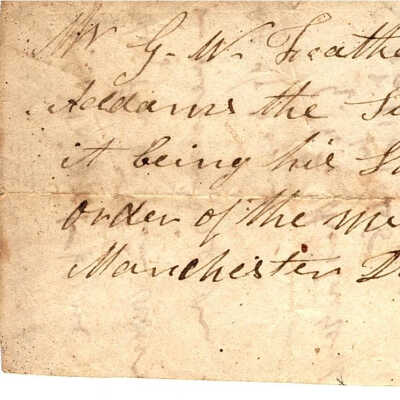 Mr G. W. Feathe
Addams the S
it being his S
order of the m
Manchester D